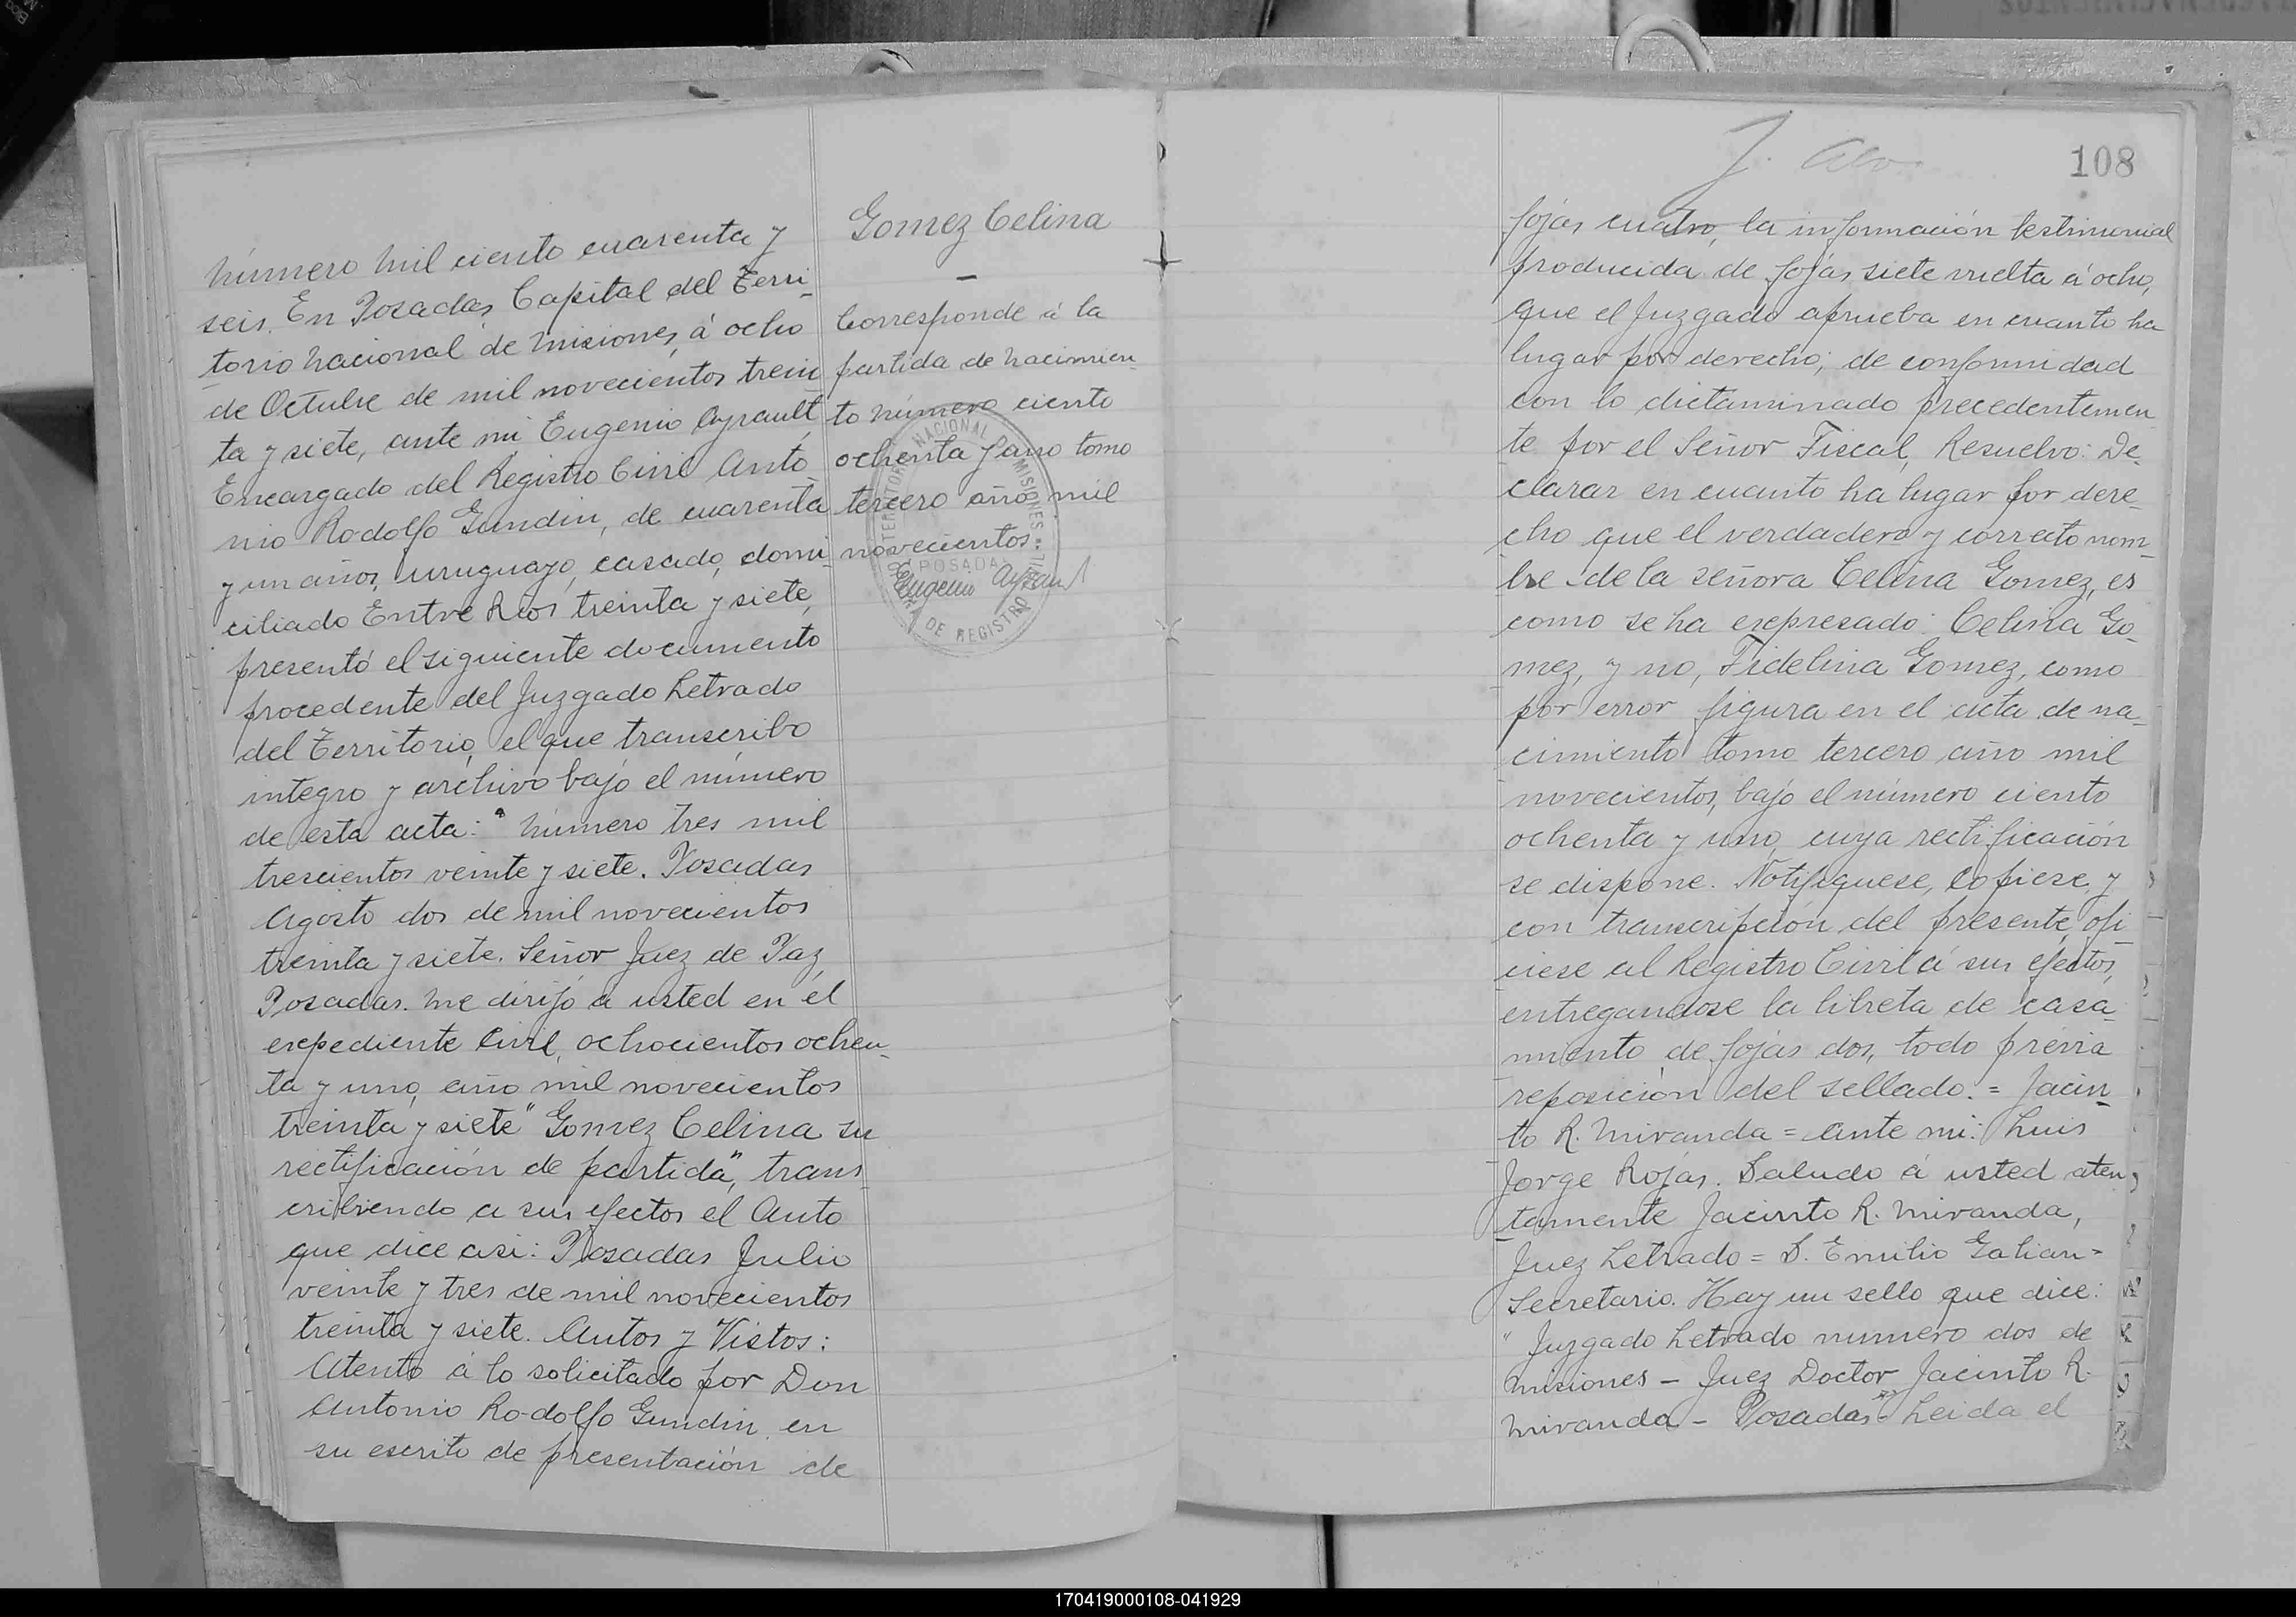 Número mil ciento cuarenta y
seis. En Posadas Capital del Terri-
torio Nacional de Misiones, á ocho
de Octubre de mil novecientos trein
ta y siete, ante mi Eugenio Ayrault,
Encargado del Registro Civil Anto-
nio Rodolfo Gundin, de cuarenta
y un años, uruguayo, casado, domi-
ciliado Entre Rios treinta y siete,
presentó el siguiente documento
procedente del Juzgado Letrado
del Territorio, el que transcribo
integro y archivo bajo el número
de esta acta: " Número tres mil
trescientos veinte y siete. Posadas
Agosto dos de mil novecientos
treinta y siete. Señor Juez de Paz,
Posadas. Me dirijo a usted en el
expediente Civil, ochocientos ochen-
ta y uno, año mil novecientos
treinta y siete "Gomez Celina su
rectificación de partida", trans-
cribiendo a sus efectos el Auto
que dice asi: Posadas Julio
veinte y tres de mil novecientos
treinta y siete. Autos y Vistos:
Atento á lo solicitado por Don
Antonio Rodolfo Gundin en
su escrito de presentación de
Gomez Celina
Corresponde á la
partida de nacimien-
to número ciento
ochenta y uno tomo
tercero año mil
novecientos.
Eugenio Ayrault
TERRITORIO NACIONAL MISIONES
POSADAS
DE REGISTRO CIVIL
108
fojas cuatro, la información testimonial
producida de fojas siete vuelta á ocho,
que el Juzgado aprueba en cuanto ha
lugar por derecho; de conformidad
con lo dictaminado precedentemen
te por el Señor Fiscal, Resuelvo: De-
clarar en cuanto ha lugar por dere-
cho que el verdadero y correcto nom-
bre de la señora Celina Gomez, es
como se ha expresado: Celina Go-
mez, y no, Fidelina Gomez, como
por error figura en el acta de na-
cimiento tomo tercero año mil
novecientos, bajo el número ciento
ochenta y uno, cuya rectificación
se dispone. Notifiquese, Copiese, y
con transcripción del presente, ofi-
ciese al Registro Civil á sus efectos,
entregandose la libreta de casa-
miento de fojas dos, todo previa
reposición del sellado. = Jacin-
to R. Miranda = Ante mi: Luis
Jorge Rojas. Saludo á usted aten-
tamente Jacinto R. Miranda,
Juez Letrado = S. Emilio Galian =
Secretario. Hay un sello que dice:
" Juzgado Letrado numero dos de
Misiones - Juez Doctor Jacinto R.
Miranda - Posadas" - Leida el
170419000108-041929